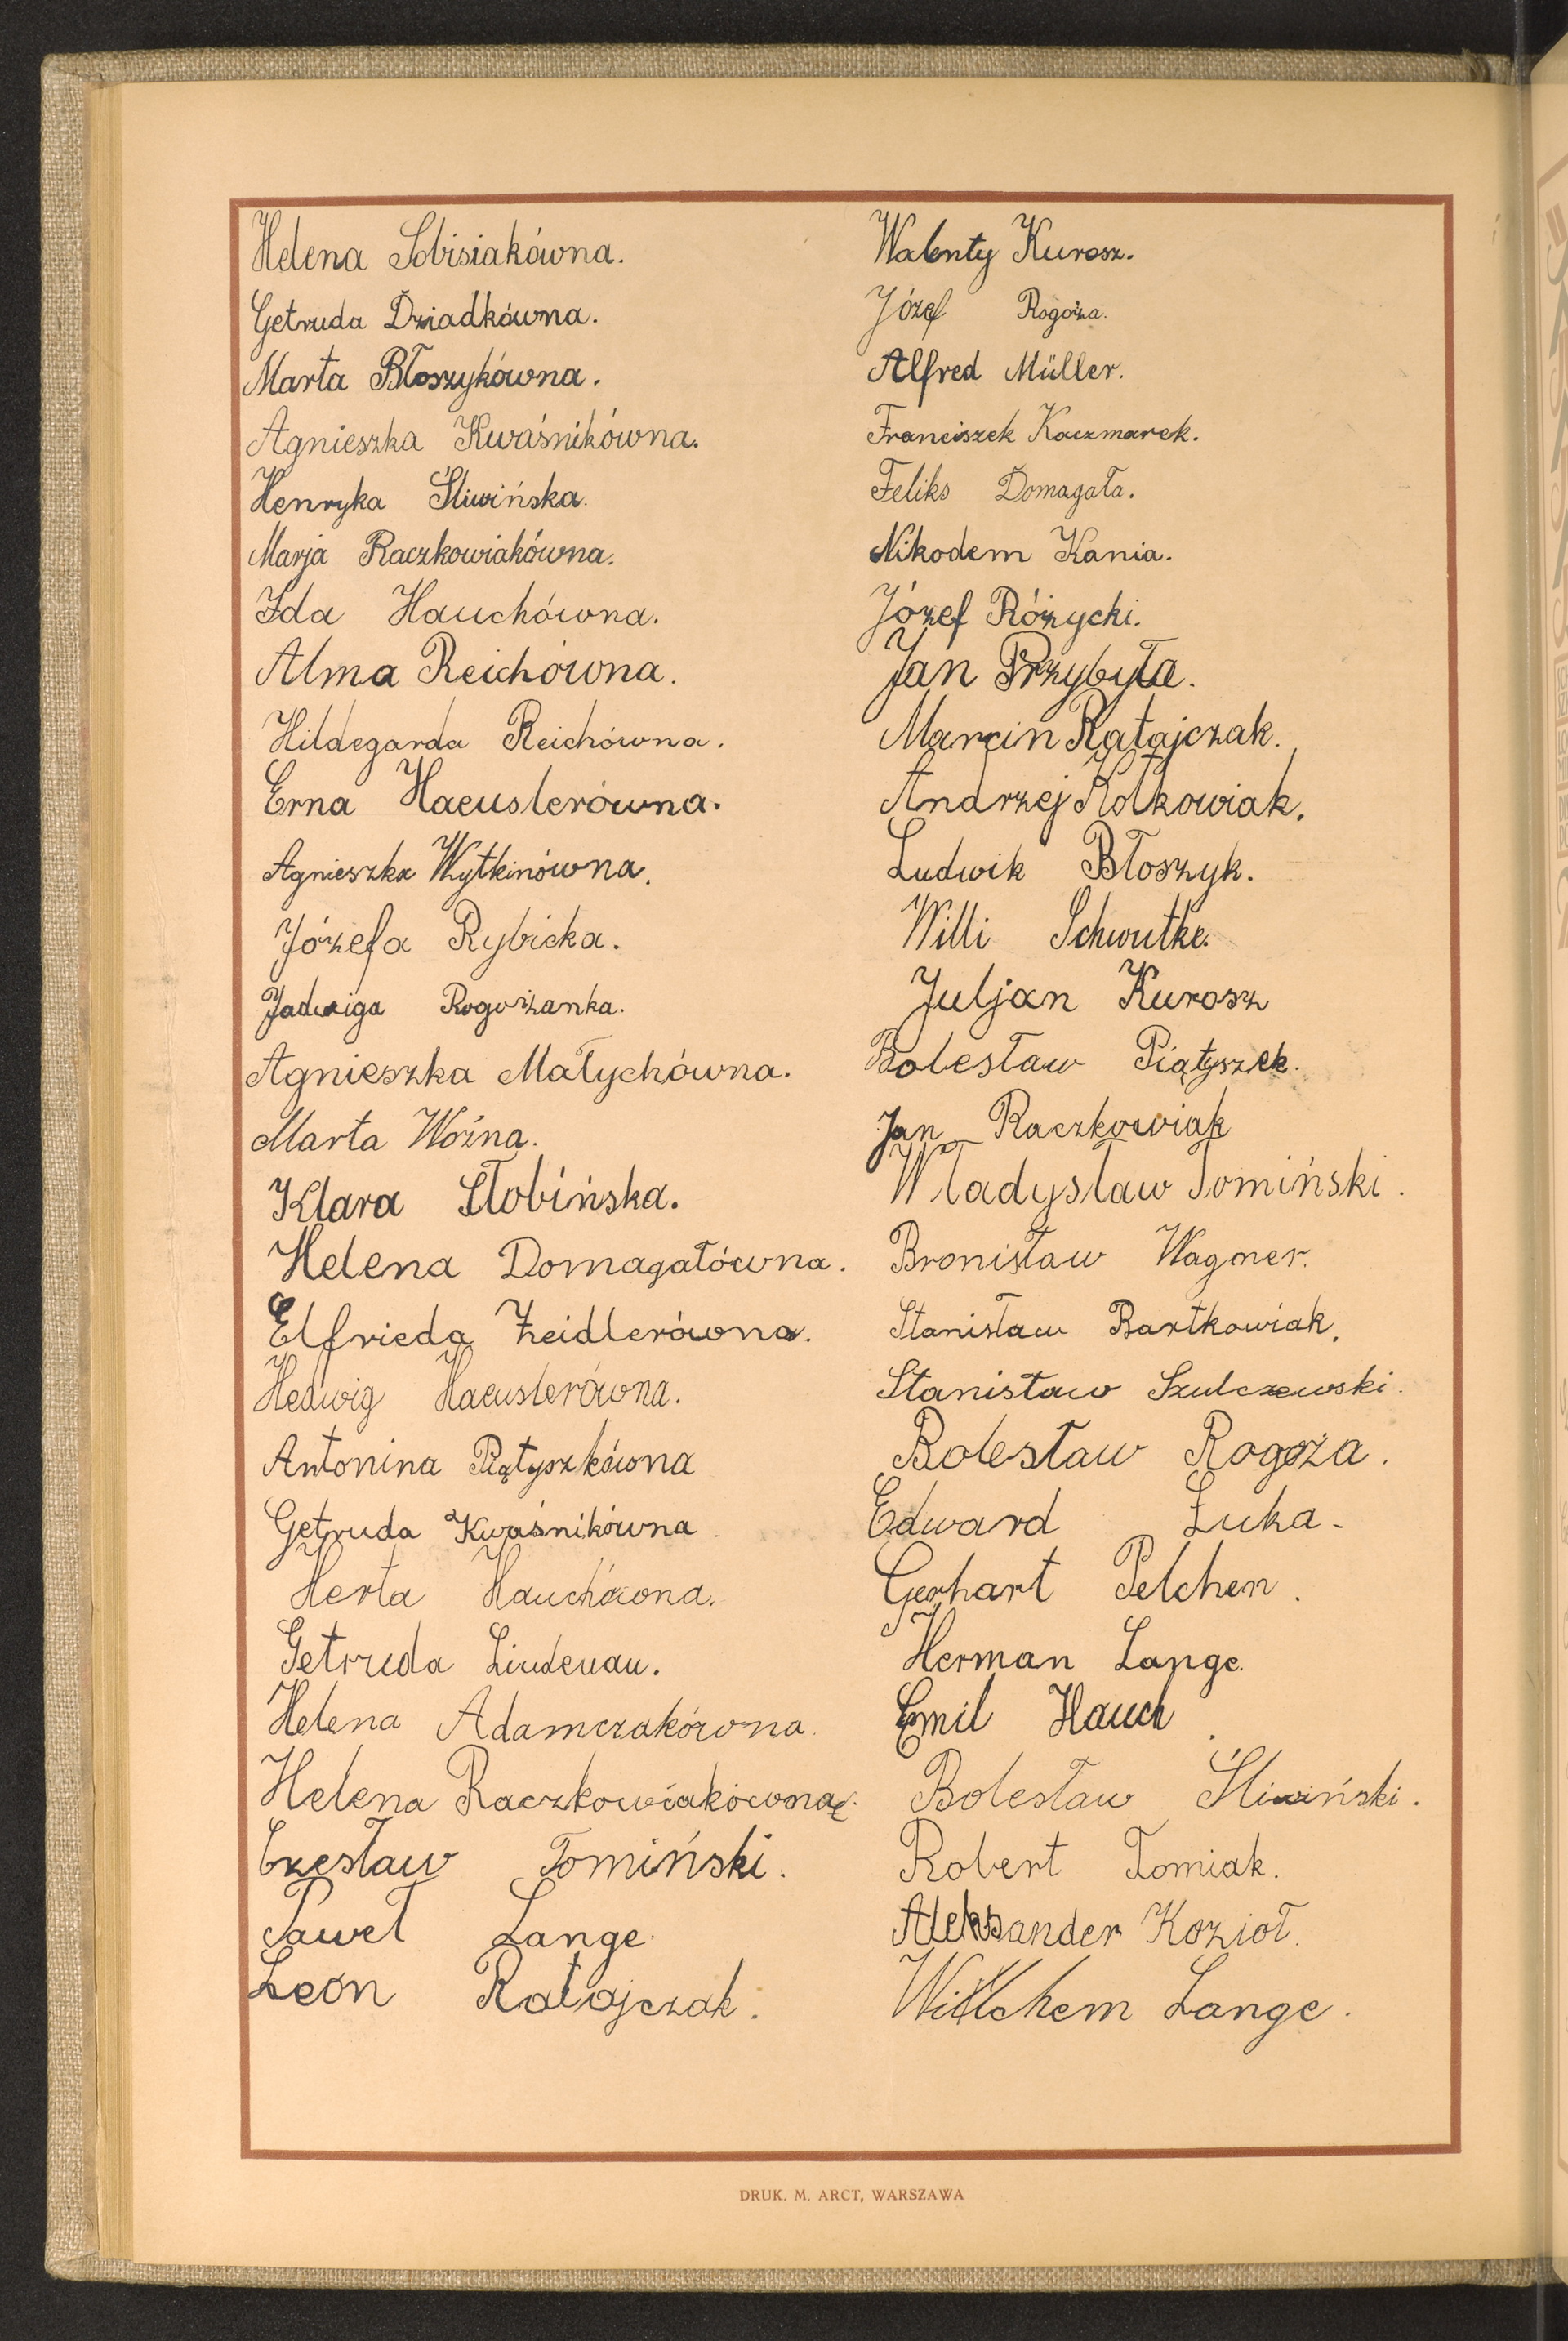 Helena Sobisiakówna.
Getruda Dziadkówna.
Marta Błoszykówna.
Agnieszka Kwaśnikówna.
Henryka Śliwińska.
Marja Raczkowiakówna.
Ida Hauchówna.
Alma Reichówna.
Hildegarda Reichówna.
Erna Haeuslerówna.
Agnieszka Wytkinówna.
Józefa Rybicka.
Jadwiga Rogożanka.
Agnieszka Małychówna.
Marta Woźna.
Klara Słobińska.
Helena Domagałówna.
Elfrieda Zeidlerówna.
Hedwig Haeuslerówna.
Antonina Piątyszkówna
Getruda Kwaśnikówna.
Herta Hauchówna.
Getruda Lindenau.
Helena Adamczakówna.
Helena Raczkowiakówna.
Czesław Tomiński.
Paweł Lange.
Leon Ratajczak.
Walenty Kurosz.
Józef Rogoża.
Alfred Müller.
Franciszek Kaczmarek.
Feliks Domagała.
Nikodem Kania.
Józef Różycki.
Jan Przybyła.
Marcin Ratajczak.
Andrzej Rolkowiak.
Ludwik Błoszyk.
Willi Schwutke.
Juljan Kurosz
Bolesław Piątyszek.
Jan Raczkowiak
Władysław Tomiński.
Bronisław Wagner.
Stanisław Bartkowiak.
Stanisław Szulczewski.
Bolesław Rogoża.
Edward Łuka.
Gerhart Pelchen.
Herman Lange.
Emil Hauch.
Bolesław Śliwiński.
Robert Tomiak.
Aleksander Kozioł.
Willchem Lange.
DRUK. M. ARCT, WARSZAWA